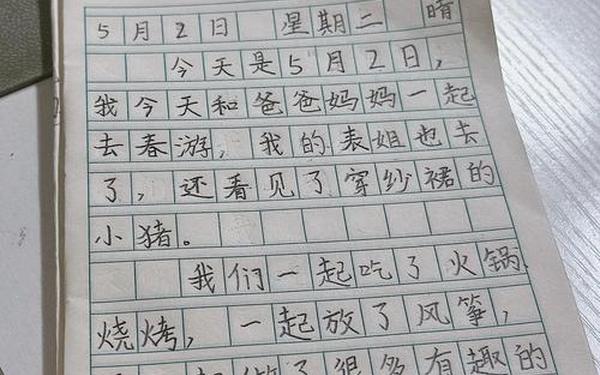 5月2日 星期二 晴
今天是5月2日,
我今天和爸爸妈妈一起
去春游,我的表姐也去
了,还看见了穿纱裙的
小猪。
我们一起吃了火锅、
烧烤,一起放了风筝,
做了很多有趣的